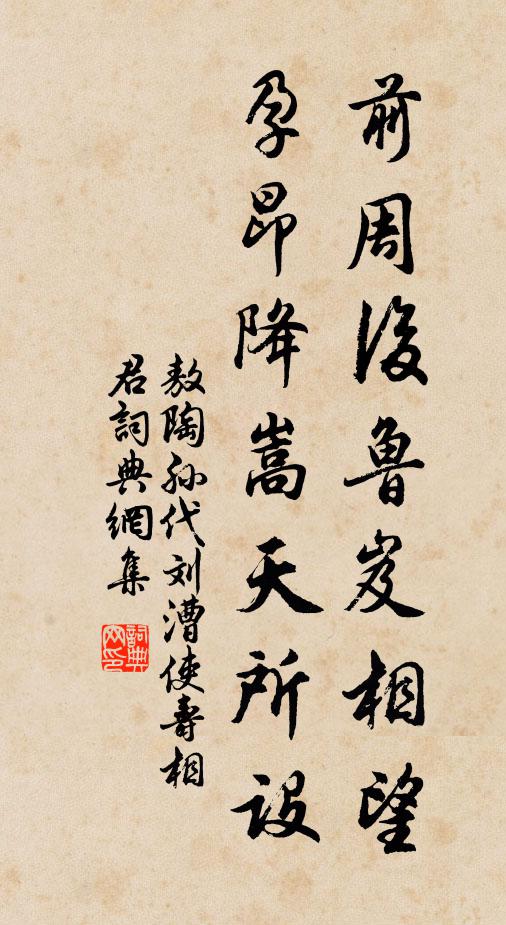 前周後魯岌相望
孕昴降嵩天所設
敖陶孙代刘漕使壽相
君詞典網集
詞典
网印